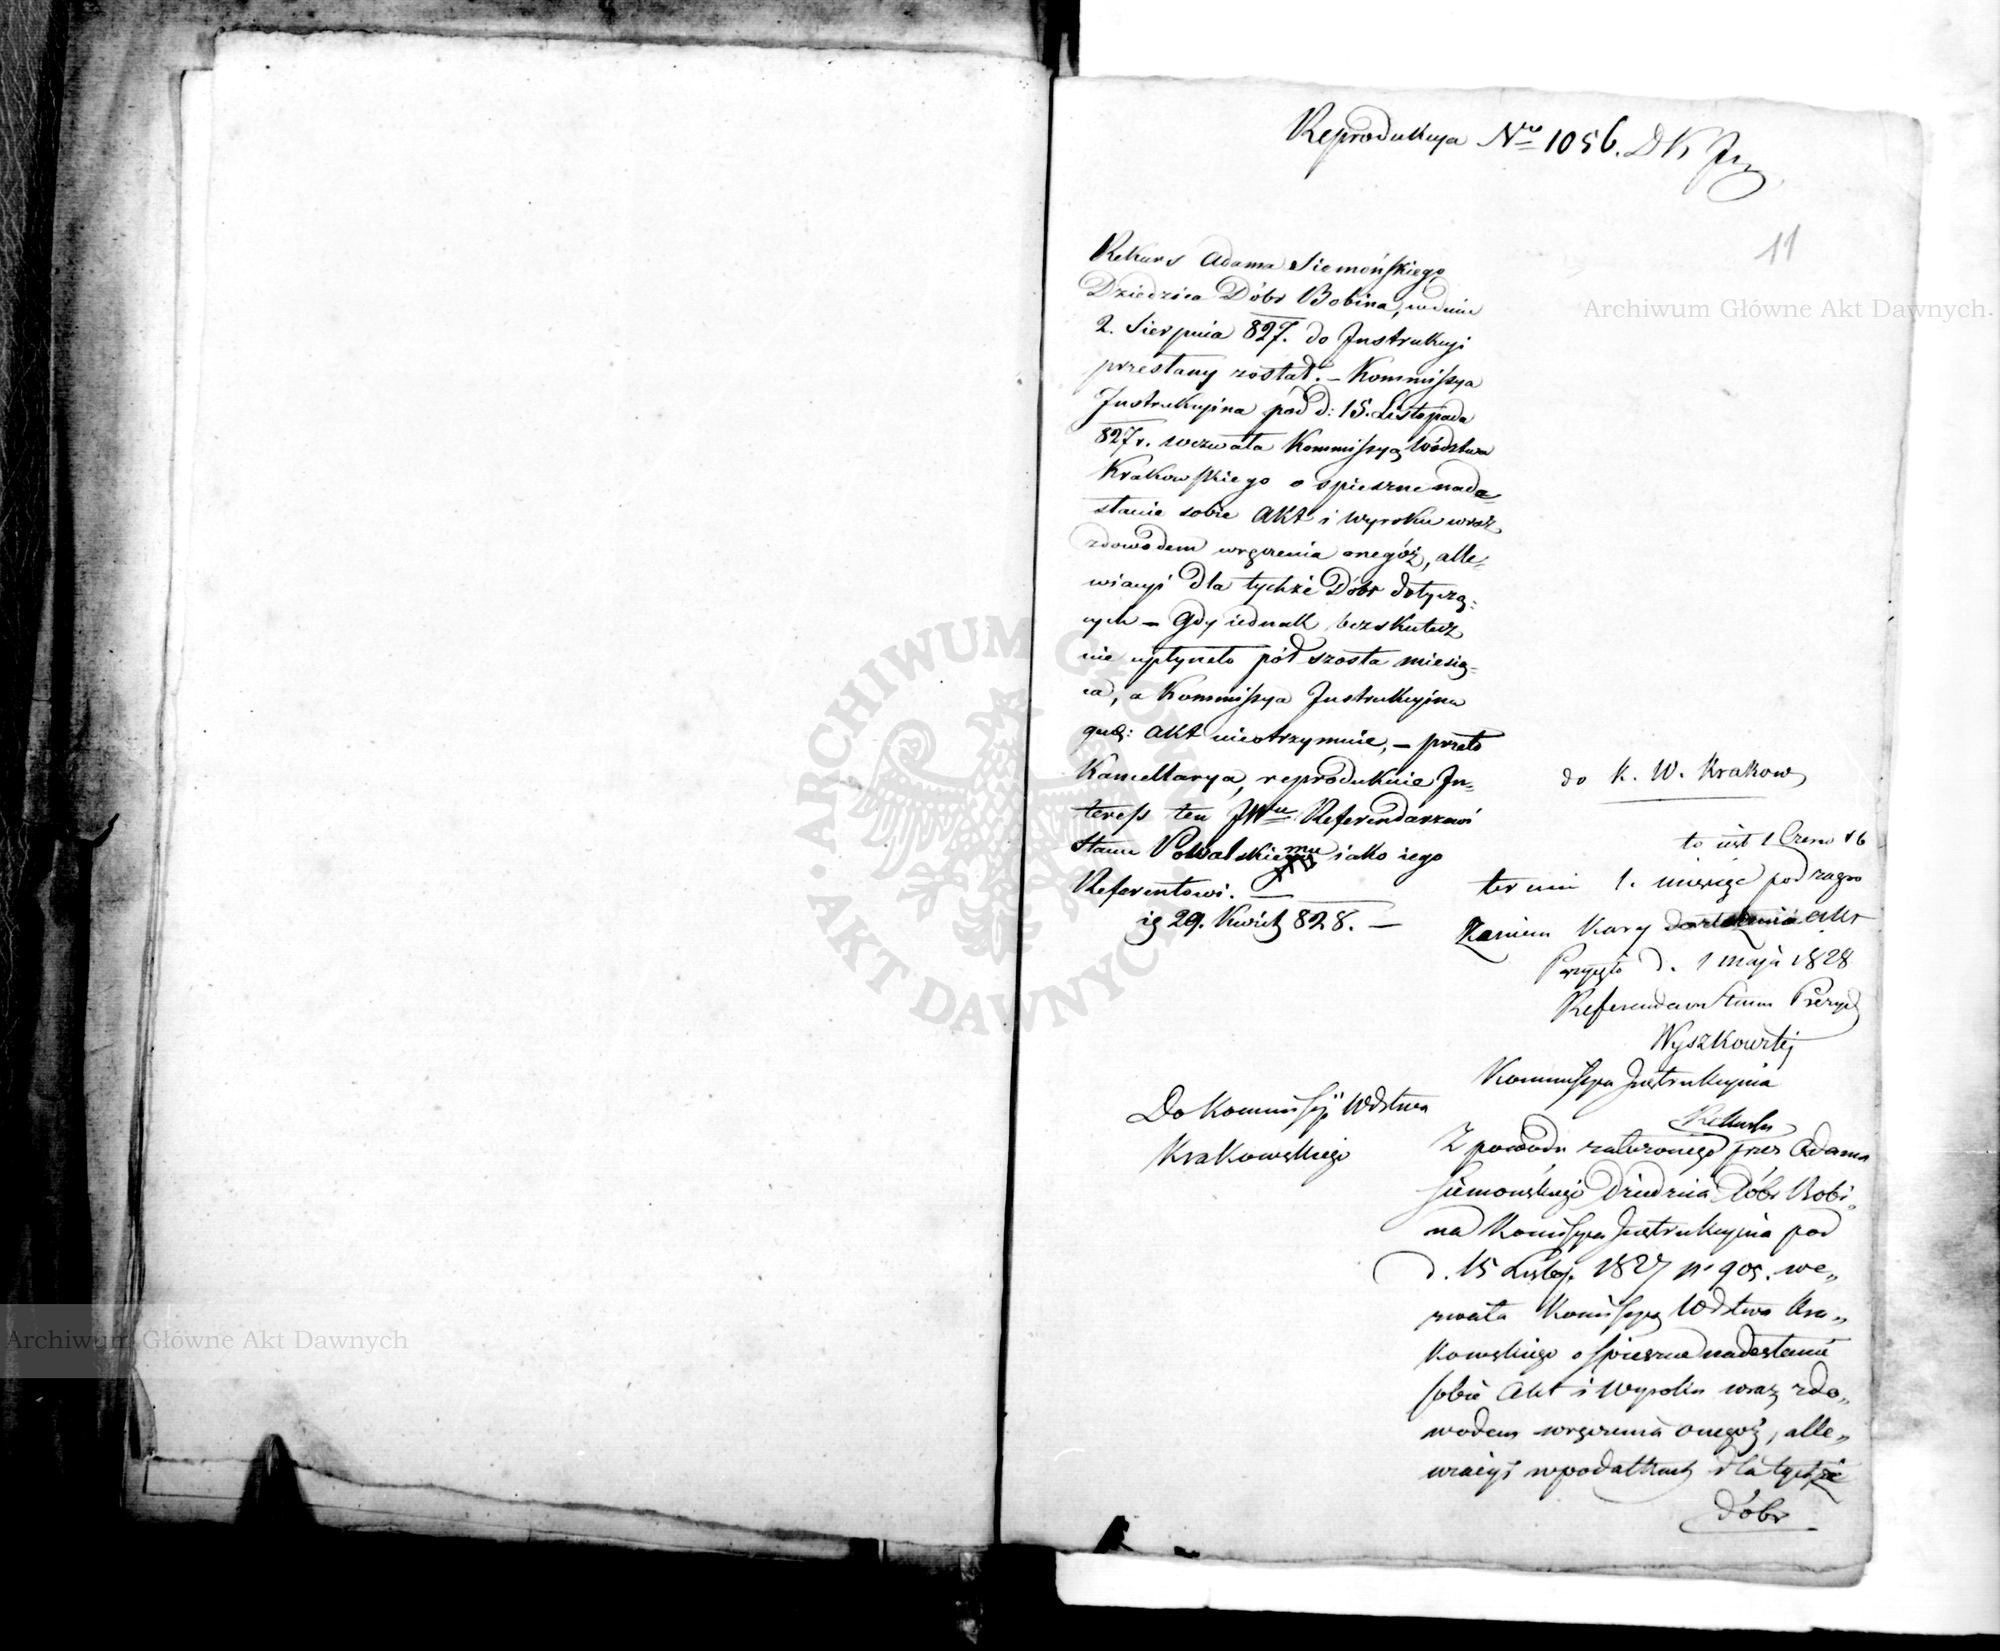 Reprodukcya Nro 1056. DKJn
11
Rekurs Adama Siemońskiego
Dziedzica Dóbr Bobina, wdniu
2. Sierpnia 827. do Instrukcyi
przesłany został. – Kommissya
Instrukcyina pód d: 15. Listopada
827 r. wezwała Kommissyą Wództwa
Krakowskiego o spieszne nade-
słanie sobie Akt i Wyroku wraz
zdowodem wręczenia onegóż, alle-
wiacyi dla tychże Dóbr dotyczą-
cych – Gdy iednak bezskutecz
nie upłyneło pół szosta miesią-
ca, a Kommissya Instrukcyina
Akt nieotrzymuie, – przeto
Kancellarya, reprodukuie In-
teress ten JWu Referendarzowi
Stanu iako iego
Referentowi. –
29. Kwiet 828. –
do K. W. Krakow
to iest 1 Czerw
termin 1. miesiąc pod zagro
żeniem Kary Akt
Przyięto d. 1 maja 1828
Referendarz Stanu Prezyd
Kommissya Instrukcyina
Do Kommissyi Wdztwa
Krakowskiego
Rekursu
Z powodu założonego przez Adama
Siemońskiego Dziedzica Dóbr Bobi„
na Komissya Instrukcyina pod
d. 15 Listop. 1827 n. 905. we„
zwała Komissyą Wdztwa Kra„
kowskiego o spieszne nadesłanie
sobie Akt i Wyroku wraz zdo„
wodem wręczenia onegoż, alle„
wiacyi wpodatkach dla tychże
Dóbr
Archiwum Główne Akt Dawnych
Archiwum Główne Akt Dawnych
ARCHIWUM GŁÓWNE AKT DAWNYCH